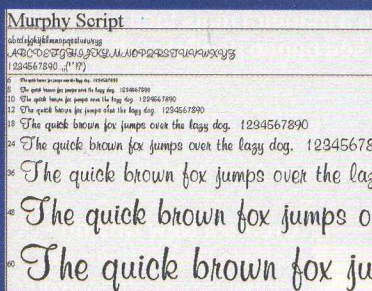 Murphy Script
abcdefghijklmnopqrstuvwxyz
ABCDEFGHIJKLMNOPQRSTUVWXYZ
1234567890 .,;(''!?)
6 The quick brown fox jumps over the lazy dog. 1234567890
8 The quick brown fox jumps over the lazy dog. 1234567890
10 The quick brown fox jumps over the lazy dog. 1234567890
12 The quick brown fox jumps over the lazy dog. 1234567890
18 The quick brown fox jumps over the lazy dog. 1234567890
24 The quick brown fox jumps over the lazy dog. 12345678
36 The quick brown fox jumps over the laz
48 The quick brown fox jumps o
60 The quick brown fox ju